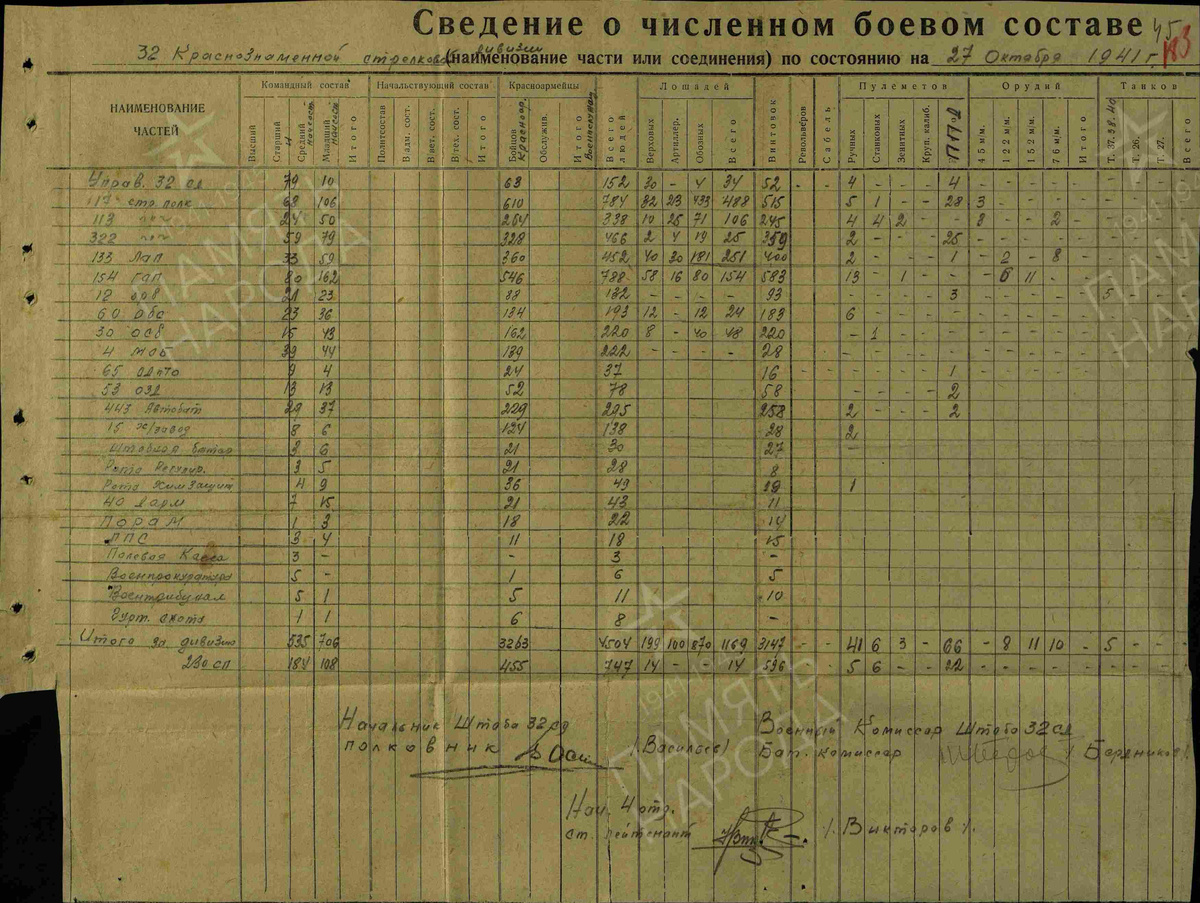 Сведение о численном боевом составе 45 183
32 Краснознаменной стрелковой дивизии (наименование части или соединения) по состоянию на 27 Октября 1941 г.
НАИМЕНОВАНИЕ ЧАСТЕЙ Командный состав Начальствующий состав Красноармейцы Лошадей Пулеметов Орудий Танков
Высший Старший и Средний начсост. Младший начсост. Итого Политсостав В адм. сост. В вет. сост. В тех. сост. Итого Бойцов Красноар. Обслужив. Итого Всего людей Верховых Артиллер. Обозных Всего Винтовок Револьверов Сабель Ручных Станковых Зенитных Круп. калиб. ППД 45 м/м. 122 м/м. 152 м/м. 76 м/м. Итого Т. 37. 38. 40 Т. 26. Т. 27. Всего
Управ. 32 сд 79 10 63 152 30 - 4 34 52 - - 4 - - - 4 - - - - - - - - -
117 стр. полк 68 106 610 784 32 23 433 488 515 - - 5 1 - - 28 3 - - - - - - -
113 -"- 24 50 264 338 10 25 71 106 245 4 4 2 - - 3 - - 2 - - - -
322 -"- 59 79 328 466 2 4 19 25 359 2 - - - 25 - - - - - - - -
133 лап 33 59 360 452 40 30 181 251 400 2 - - - 1 - 2 - 8 - - - -
154 гап 80 162 546 788 58 16 80 154 583 13 - 1 - - - 6 11 - - - - -
12 орв 21 23 88 132 - - - - 93 - - - - 3 - - - - - 5 - - -
60 обс 23 36 134 193 12 - 12 24 183 6 - - - - - - - - - - - -
30 осб 15 43 162 220 8 - 40 48 220 - 1 - - - - - - - - - - -
4 мсб 39 44 139 222 - - - - 28 - - - - - - - - - - - -
65 9 4 24 37 16 - - - - 1 - - - - - - -
53 озд 13 13 52 78 58 2
443 Автобат 29 37 229 295 258 2 - - - 2
15 х/завод 8 6 124 138 28 2
Штабная батар 3 6 21 30 27 -
Рота Регулир. 3 5 21 28 8
Рота Химзащит 4 9 36 49 19 1
40 дарм 7 15 21 43 11
ПОРАМ 1 3 18 22 14
ППС 3 4 11 18 15
Полевая Касса 3 - - 3 -
Военпрокуратура 5 - 1 6 5
Воентрибунал 5 1 5 11 10
Гурт. скота 1 1 6 8 -
Итого за дивизию 535 706 3263 4504 199 100 870 1169 3147 - - 41 6 3 - 66 - 8 11 10 - 5 - - -
230 сп 184 108 455 747 14 - - 14 596 - - 5 6 - - 22 - - - - - - - - -
Начальник Штаба 32 сд Военный Комиссар Штаба 32 сд
полковник /Васильев/ Бат. комиссар
Нач. 4 отд.
ст. лейтенант /. Викторов /.